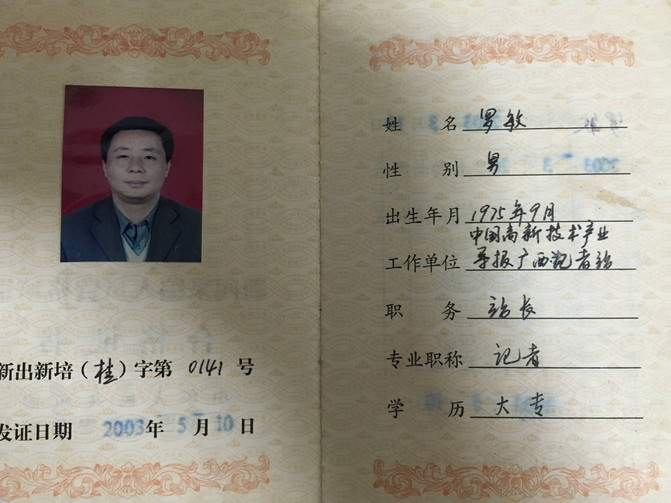 新出新培（桂）字第 0141 号
发证日期 2003年 5月10日
姓 名 罗敏
性 别 男
出生年月 1975年9月
中国高新技术产业
工作单位 导报广西记者站
职 务 站长
专业职称 记者
学 历 大专